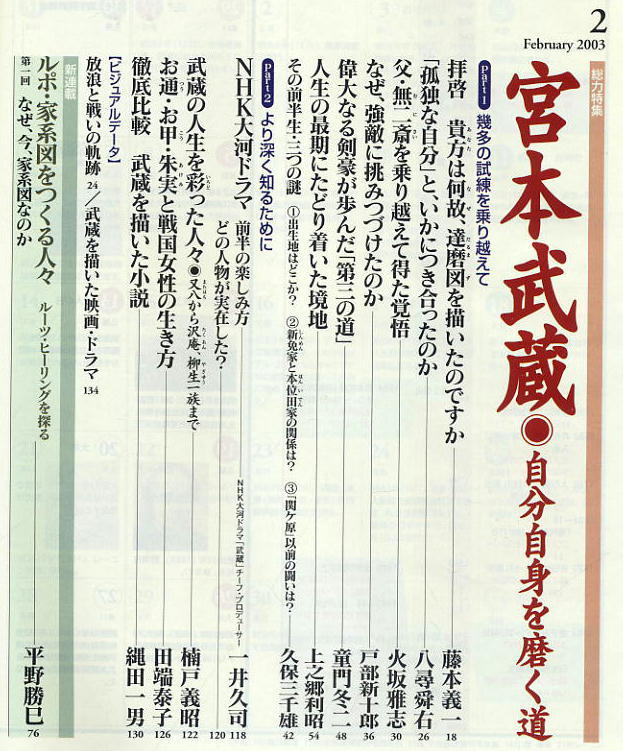 2
February 2003
総力特集
宮本武蔵◉自分自身を磨く道
Part 1 幾多の試練を乗り越えて
拝啓 貴方は何故、達磨図を描いたのですか 藤本義一 18
「孤独な自分」と、いかにつき合ったのか 八尋舜右 26
父・無二斎を乗り越えて得た覚悟 火坂雅志 30
なぜ、強敵に挑みつづけたのか 戸部新十郎 36
偉大なる剣豪が歩んだ「第三の道」 童門冬二 48
人生の最期にたどり着いた境地 上之郷利昭 54
その前半生・三つの謎 ①出生地はどこか? ②新免家と本位田家の関係は? ③「関ケ原」以前の闘いは? 久保三千雄 42
Part 2 より深く知るために
NHK大河ドラマ 前半の楽しみ方 NHK大河ドラマ「武蔵」チーフ・プロデューサー 一井久司 118
どの人物が実在した? 120
武蔵の人生を彩った人々◉又八から沢庵、柳生一族まで 楠戸義昭 122
お通・お甲・朱実と戦国女性の生き方 田端泰子 126
徹底比較 武蔵を描いた小説 縄田一男 130
【ビジュアルデータ】
放浪と戦いの軌跡 24/武蔵を描いた映画・ドラマ 134
新連載
ルポ・家系図をつくる人々 ルーツ・ヒーリングを探る
第一回 なぜ、今、家系図なのか 平野勝巳 76